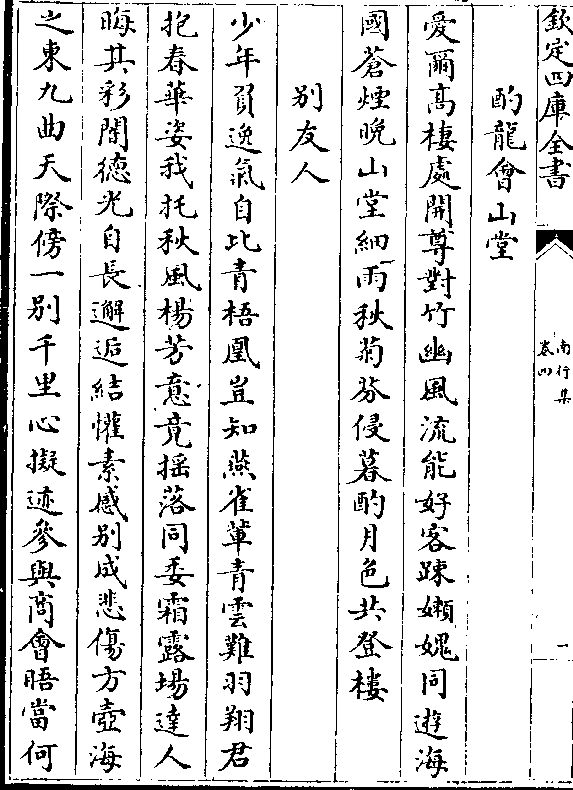 欽定四庫全書
南行集
卷四
一
酌龍會山堂
愛爾高棲處開尊對竹幽風流能好客踈嬾媿同遊海
國蒼煙晚山堂細雨秋菊芬侵暮酌月色共登樓
別友人
少年負逸氣自比青梧凰豈知燕雀輩青雲難羽翔君
抱春華姿我托秋風楊芳意竟揺落同委霜露場達人
晦其彩闇德光自長邂逅結懽素感別成悲傷方壺海
之東九曲天際傍一別千里心擬迹參與商會晤當何